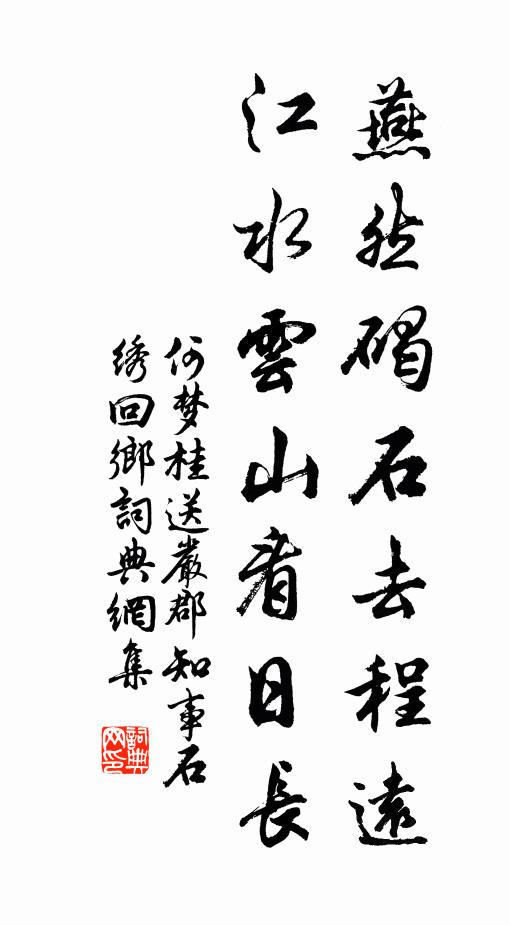 燕然碣石去程遠
江水雲山看日長
何梦桂送嚴郡知事石
绣回鄉詞典網集
詞典网印